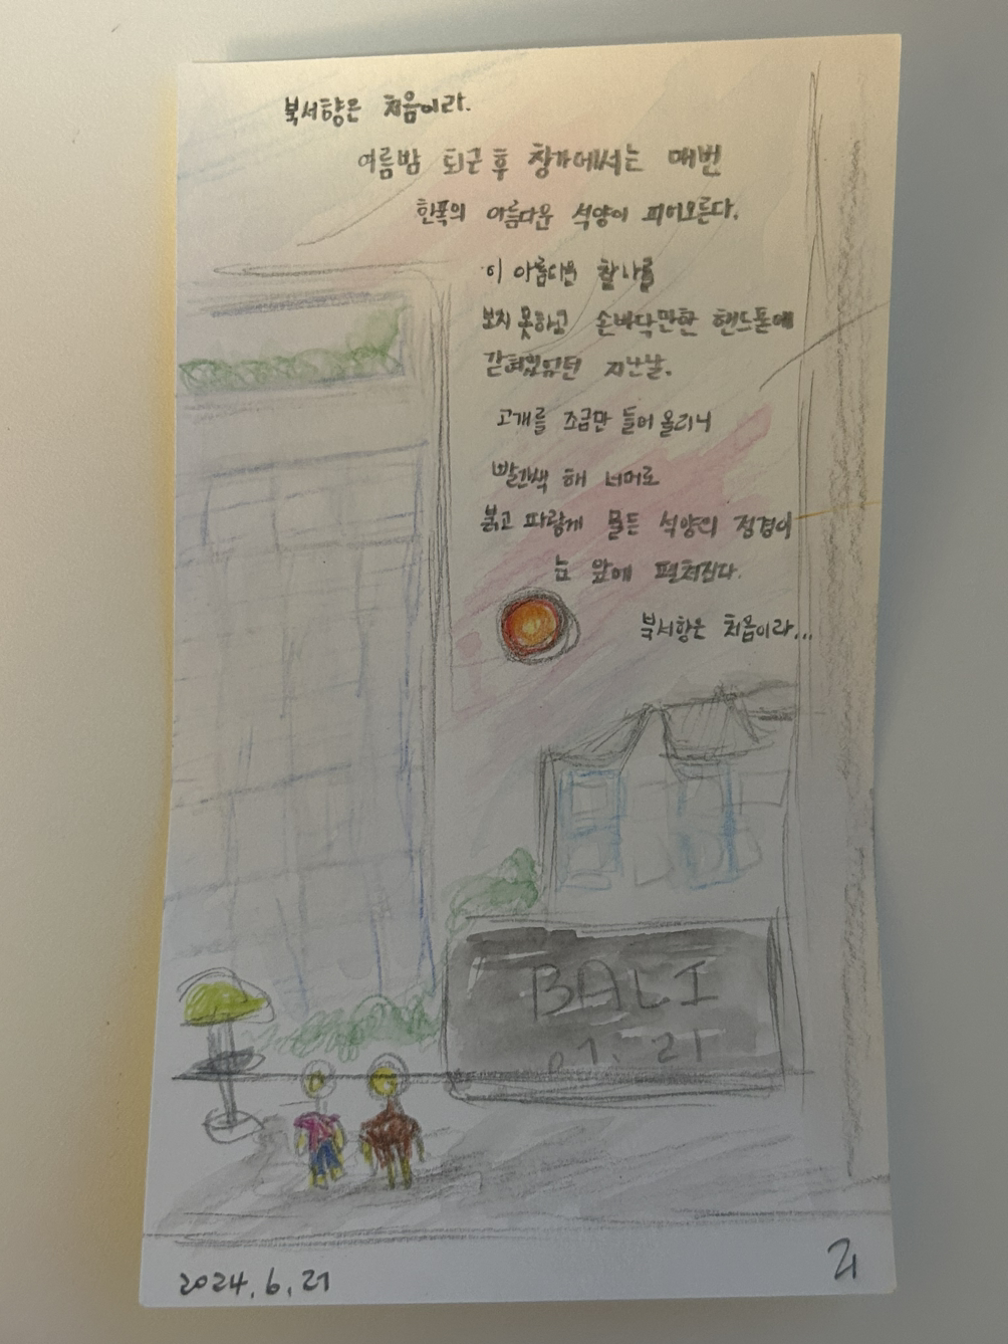 북서향은 처음이라.
여름밤 퇴근 후 창가에서는 매번
한폭의 아름다운 석양이 피어오른다.
이 아름다운 찰나를
보지 못하고 손바닥만한 핸드폰에
갇혀있었던 지난날.
고개를 조금만 들어 올리니
빨간색 해 너머로
붉고 파랗게 물든 석양의 정경이
눈 앞에 펼쳐진다.
북서향은 처음이라...
BALI
07. 21
2024. 6. 21